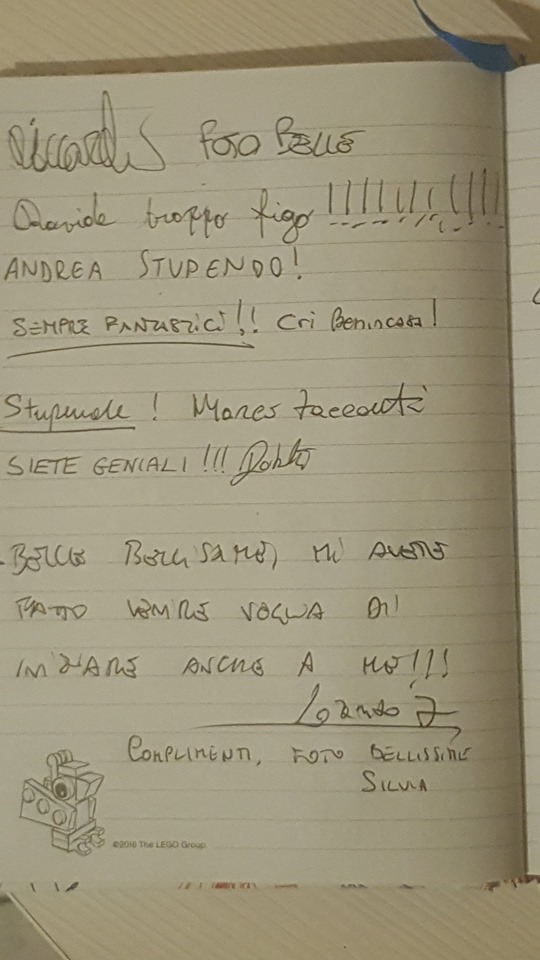 Riccardo FOTO BELLE
Davide troppo figo !!!!!!!!!!!
ANDREA STUPENDO!
SEMPRE FANTASTICI!! Cri Benincasa!
Stupende !
SIETE GENIALI !!!
BELLE BELLISSIME, MI AVETE
FATTO VENIRE VOGLIA DI
INIZIARE ANCHE A ME!!!
COMPLIMENTI, FOTO BELLISSIME
SILVIA
©2016 The LEGO Group.